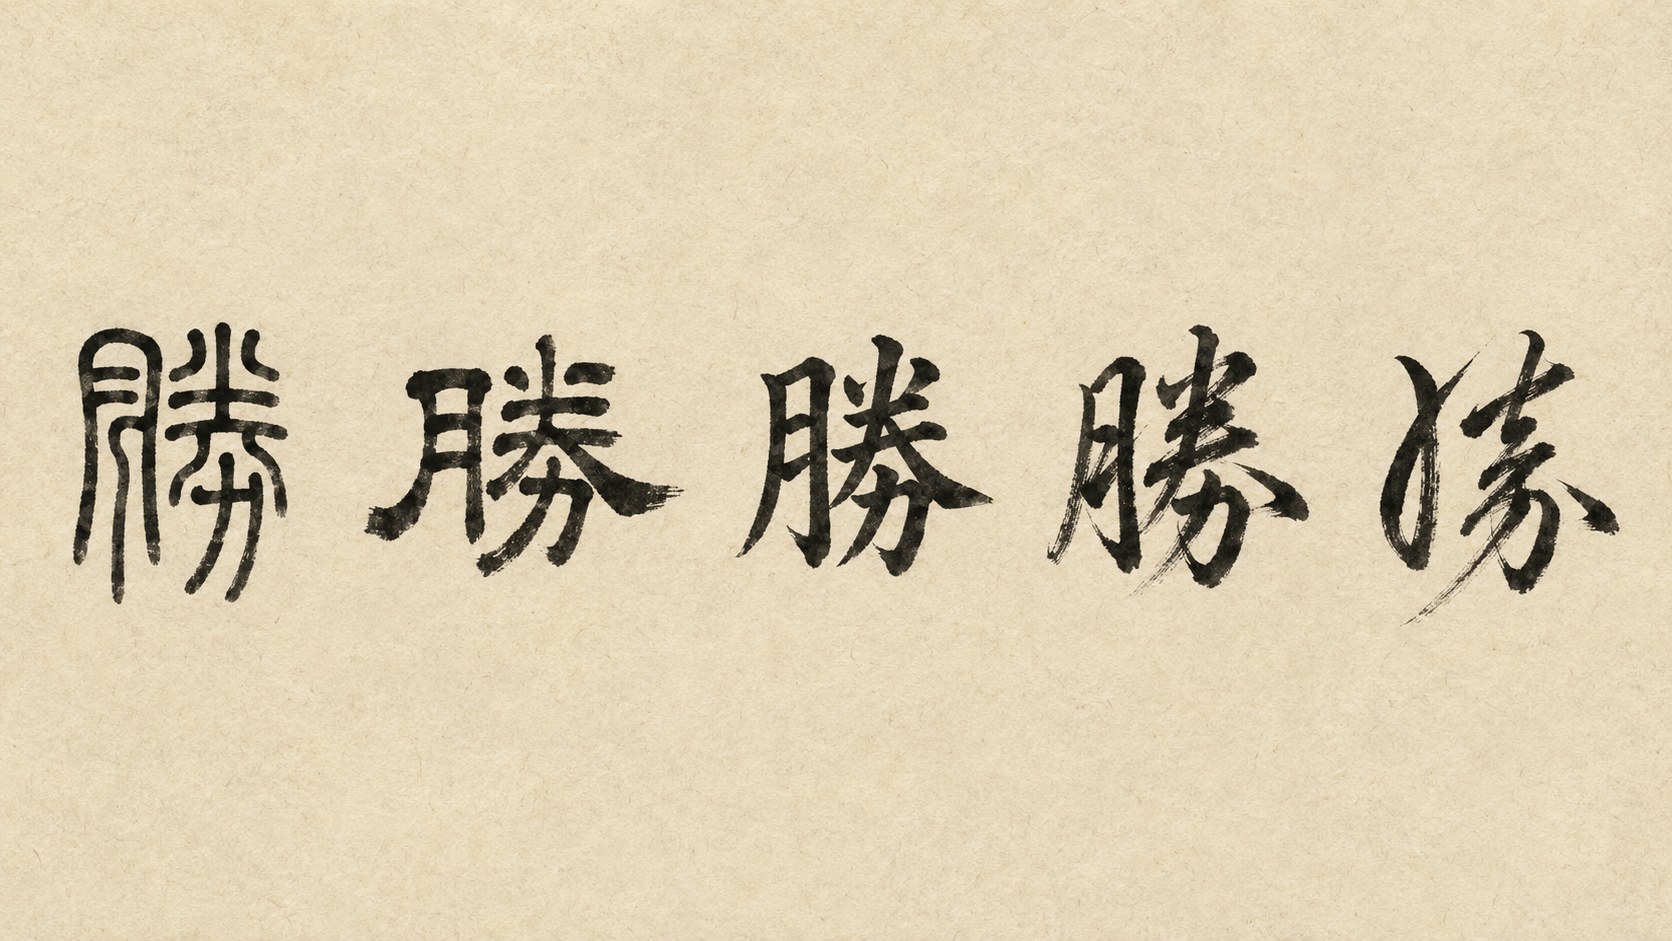 勝 勝 勝 勝 勝